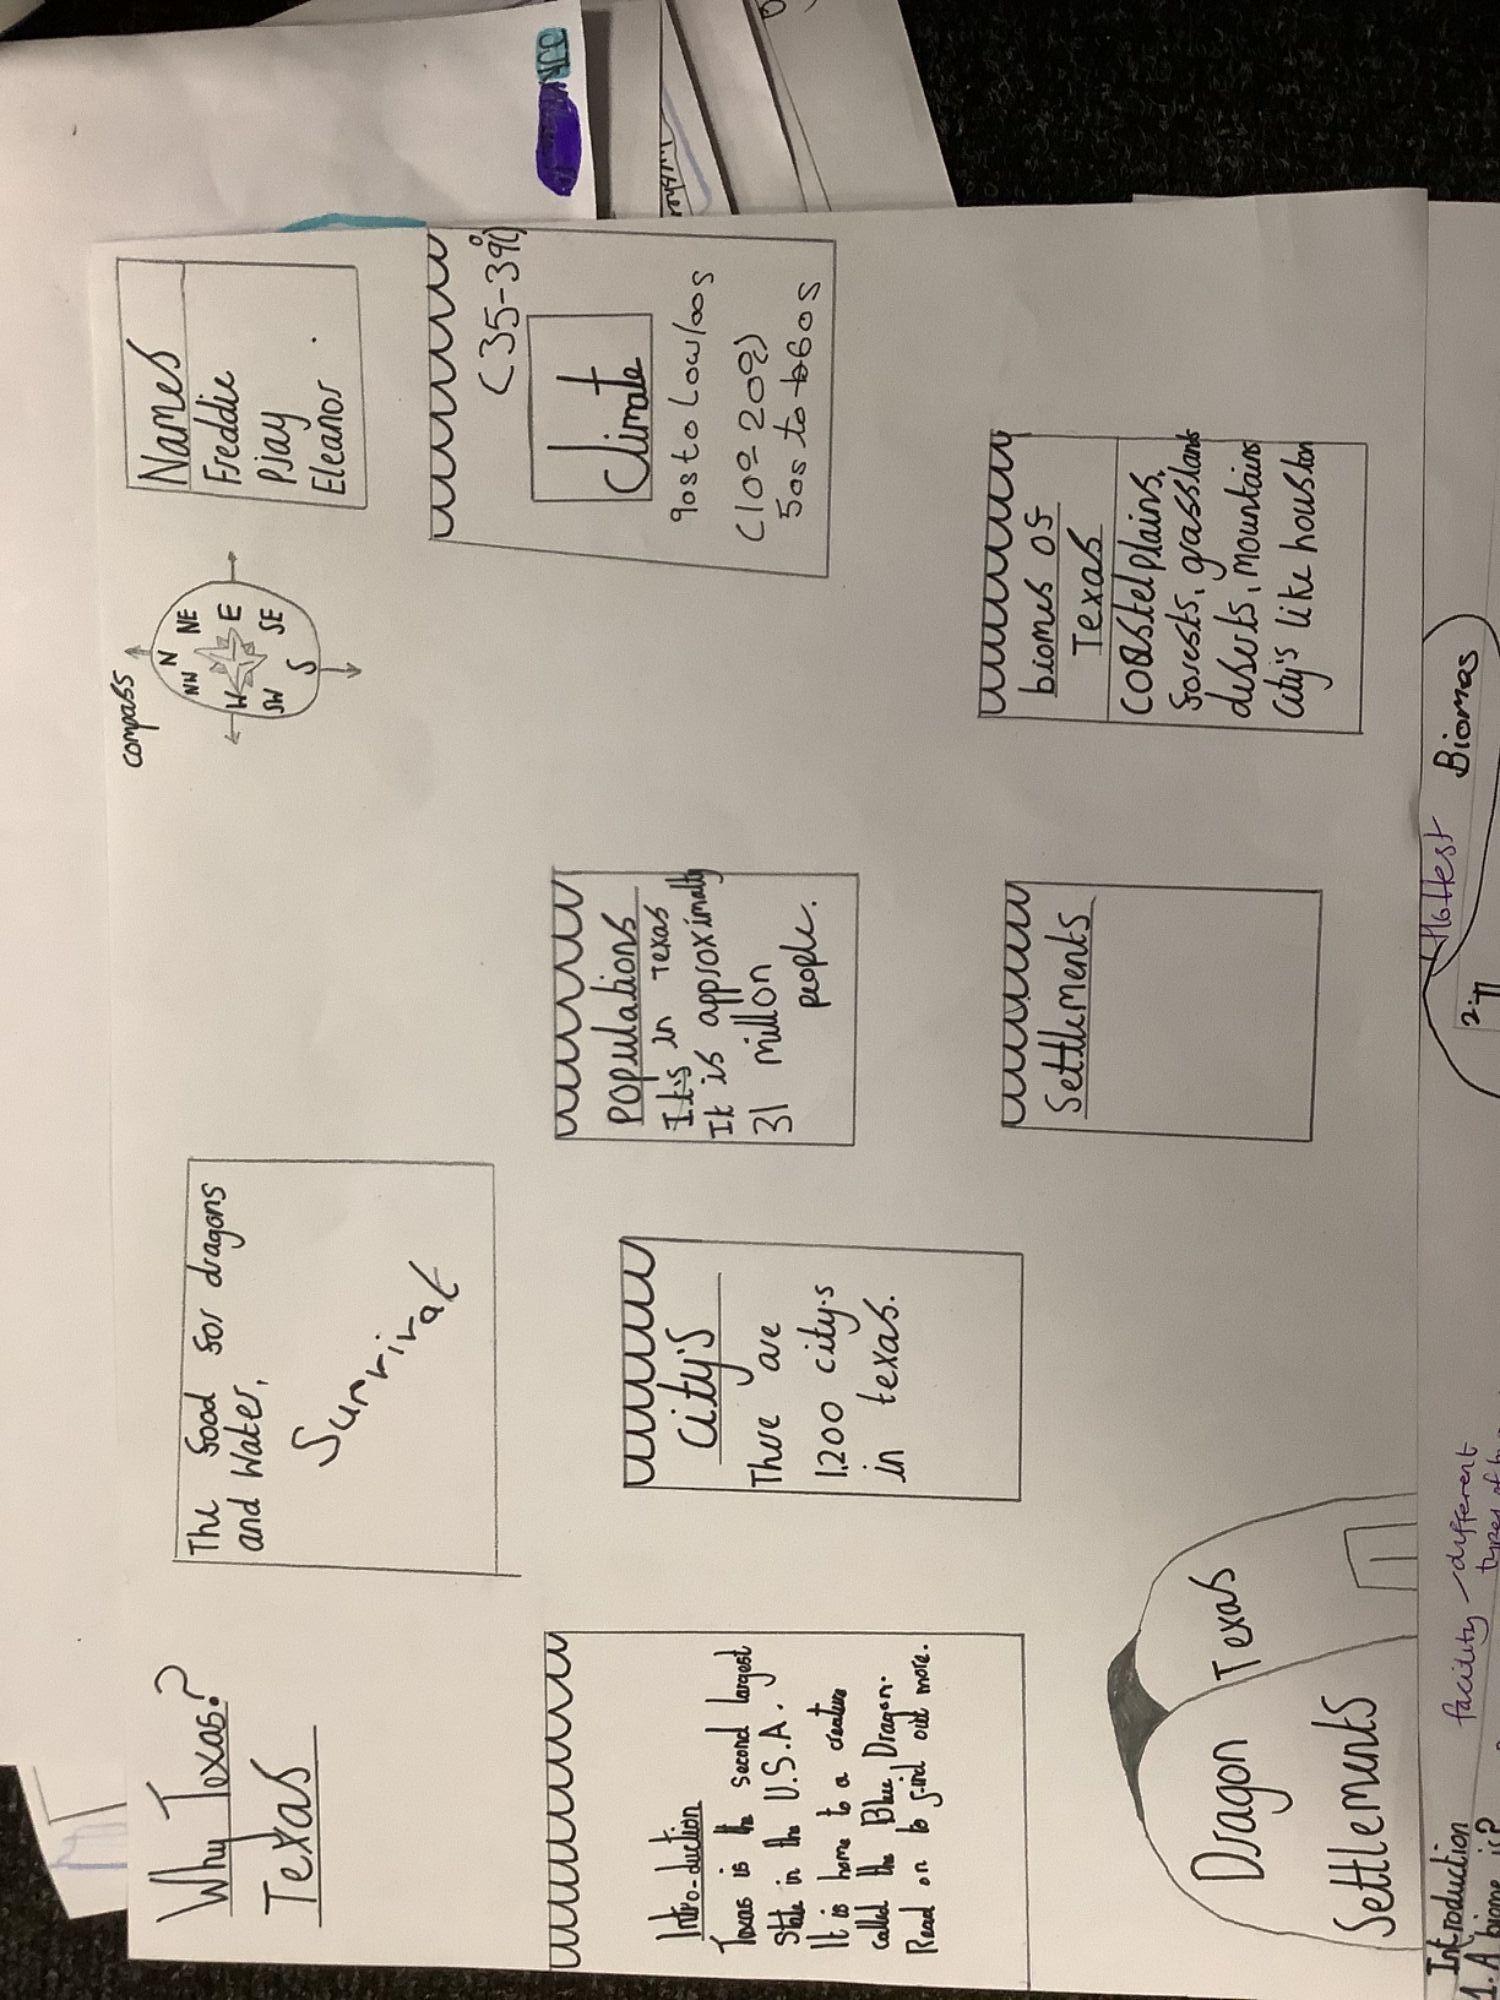 Why Texas?
Texas
The food for dragons
and water,
Survival
compass
N
NE
E
SE
S
SW
W
NW
Names
Freddie
Pjay
Eleanor
Intro-duction
Texas is the second largest
State in the U.S.A.
It is home to a creature
called the Blue Dragon.
Read on to find out more.
City's
There are
1,200 city's
in texas.
Populations
It is in Texas
It is approximatly
31 millon
people.
(35-39°C)
Climate
90s to low 100s
(10°-20°C)
50s to 60s
Dragon
Settlements
Texas
Settlements
biomes of
Texas
coastel plains,
forests, grasslands
deserts, mountains
city's like houston
Introduction
1. A biome is?
facility - different
types of
Hottest
Biomes